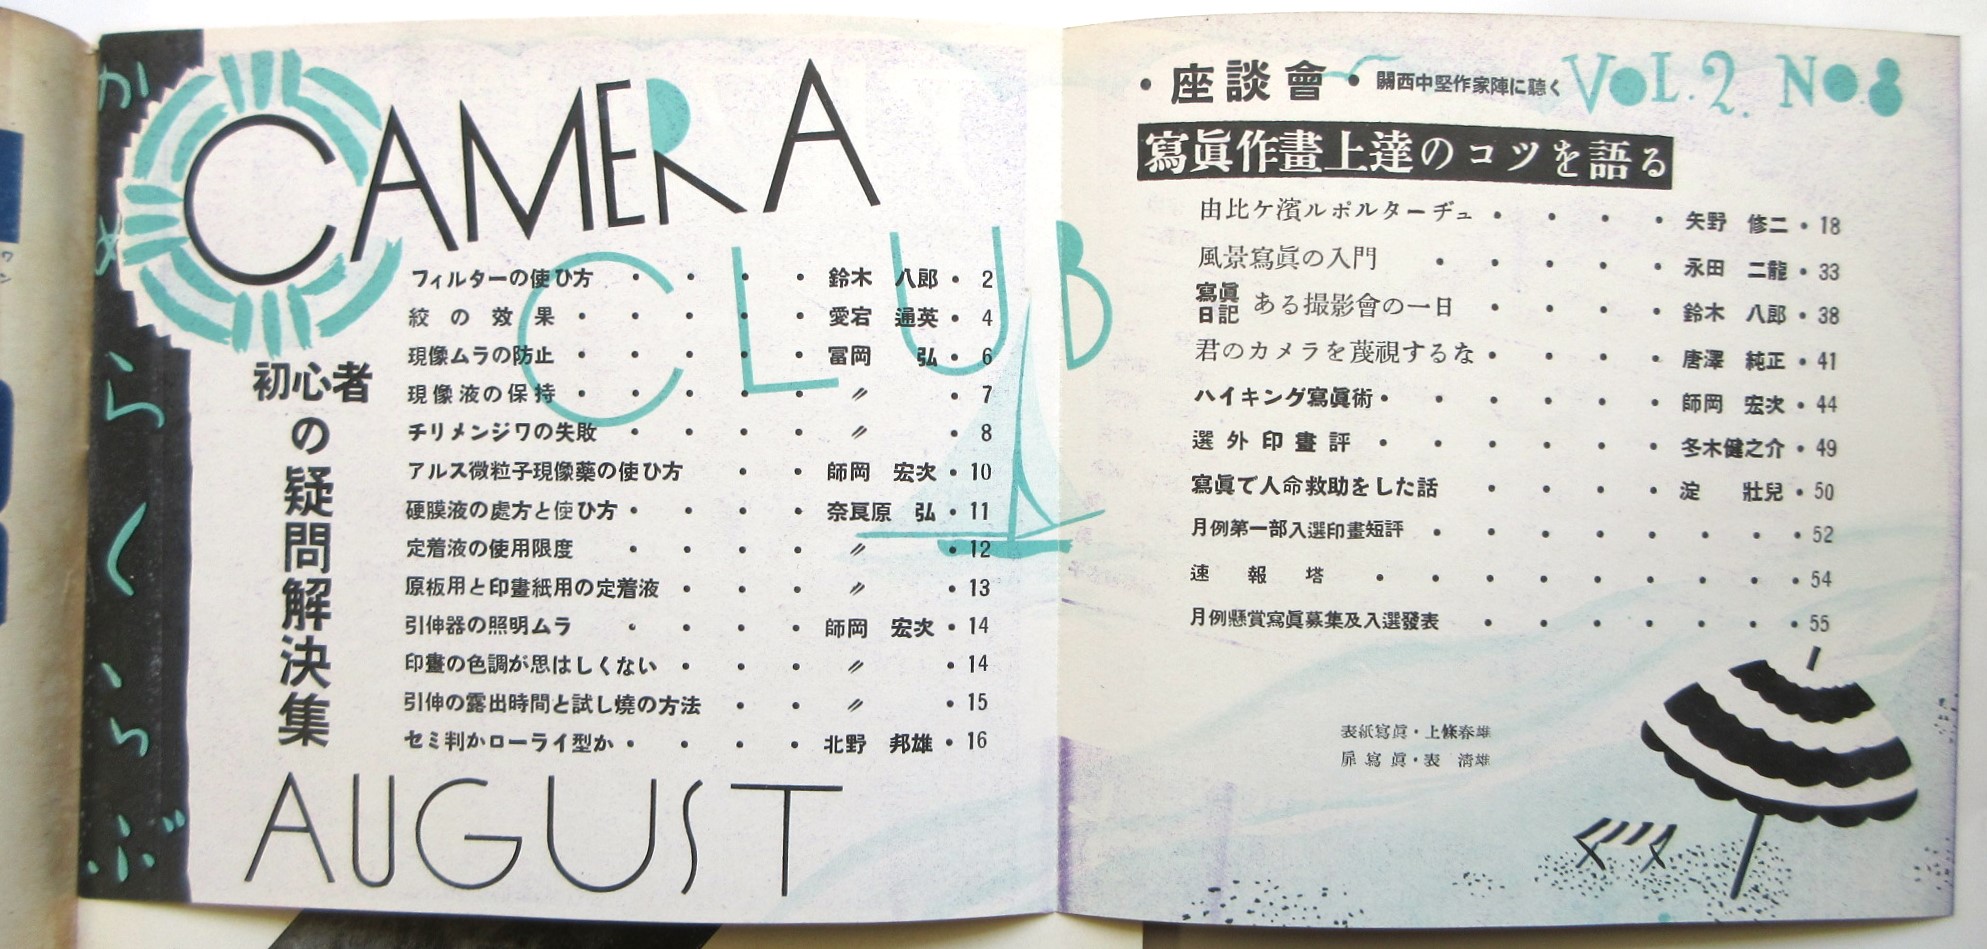 かめらくらぶ
CAMERA
CLUB
初心者の疑問解決集
フィルターの使ひ方・・・・鈴木 八郎・2
絞の効果・・・・・愛宕 通英・4
現像ムラの防止・・・・・冨岡 弘・6
現像液の保持・・・・・〃・7
チリメンジワの失敗・・・・〃・8
アルス微粒子現像藥の使ひ方・・師岡 宏次・10
硬膜液の處方と使ひ方・・・・奈良原 弘・11
定着液の使用限度・・・・〃・12
原板用と印畫紙用の定着液・・・〃・13
引伸器の照明ムラ・・・・師岡 宏次・14
印畫の色調が思はしくない・・・〃・14
引伸の露出時間と試し燒の方法・・〃・15
セミ判かローライ型か・・・・北野 邦雄・16
AUGUST
VOL.2. NO.8
・座談會・關西中堅作家陣に聽く
寫眞作畫上達のコツを語る
由比ケ濱ルポルターヂュ・・・・矢野 修二・18
風景寫眞の入門・・・・・永田 二龍・33
寫眞日記 ある撮影會の一日・・・・鈴木 八郎・38
君のカメラを蔑視するな・・・・唐澤 純正・41
ハイキング寫眞術・・・・・師岡 宏次・44
選外印畫評・・・・・・冬木健之介・49
寫眞で人命救助をした話・・・・淀 壯兒・50
月例第一部入選印畫短評・・・・・・・52
速報塔・・・・・・・・・54
月例懸賞寫眞募集及入選發表・・・・・・・55
表紙寫眞・上條春雄
扉寫眞・表 清雄